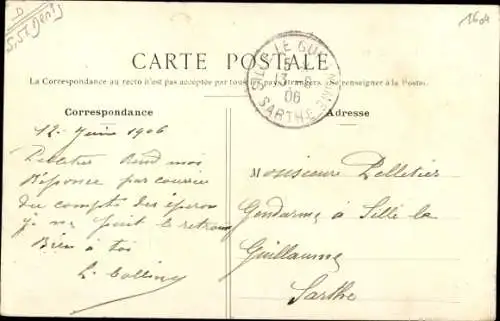 D
S, St Denis
1604
CARTE POSTALE
La Correspondance au recto n'est pas acceptée par tous pays étrangers. renseigner à la Poste.
SILLÉ-LE-GUIL
13 -6
06
SARTHE
Correspondance
12 - Juin 1906
Pelletier Rend moi
Réponce par courrier
du compts des éperon
je ne puit le retrouv
Bien à toi
L. Colliny
Adresse
Monsieur Pelletier
Gendarme à Sillé le
Guillaume
Sarthe